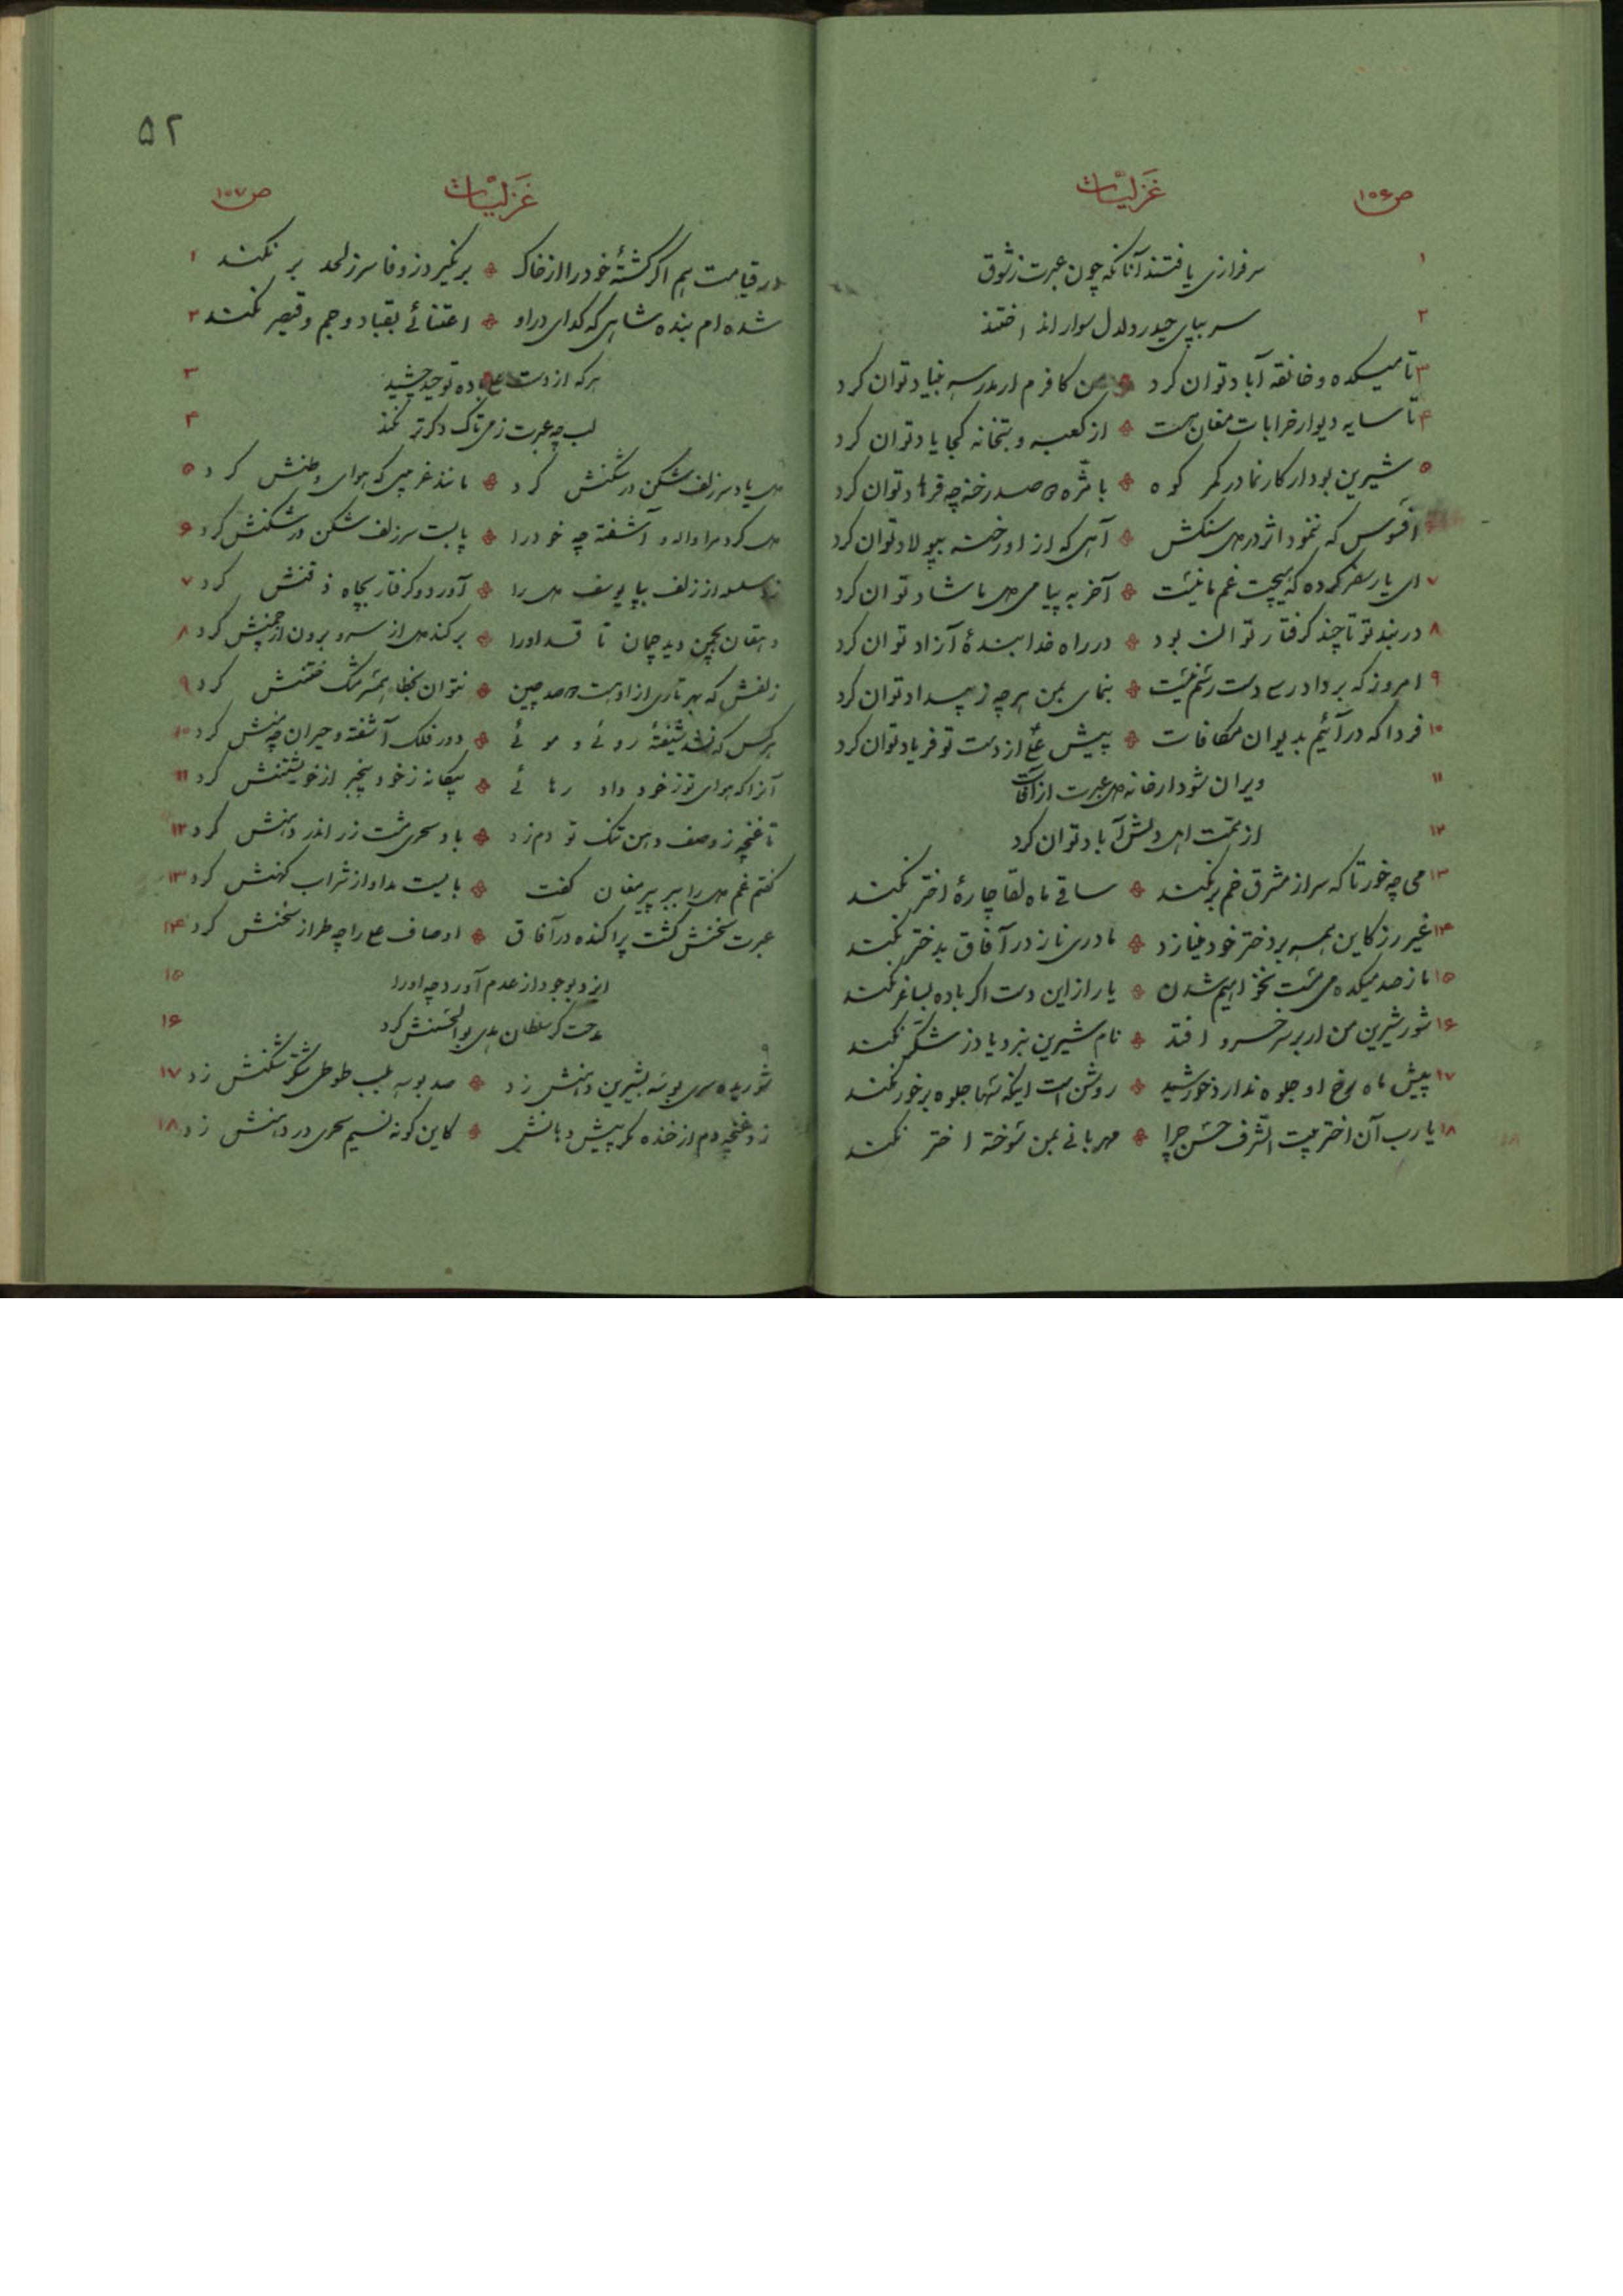 ص ۱۵۶ غَزَلیّات
۱ سرفرازی یافتند آنانکه چون عبرت زشوق
۲ سر بپای حیدر دلدل سوار انداختند
۳ تا میکده و خانقه آباد توان کرد من کافرم ار مدرسه بنیاد توان کرد
۴ تا سایه دیوار خرابات مغان هست از کعبه و بتخانه کجا یاد توان کرد
۵ شیرین بود ار کارنما در کمر کوه با مژه صد رخنه چه فرهاد توان کرد
۶ افسوس که ننمود اثر در دل سنگش آهی که از او رخنه بپولاد توان کرد
۷ ای یار سفر کرده که هیچت غم ما نیست آخر به پیامی دل ما شاد توان کرد
۸ در بند تو تا چند گرفتار توان بود در راه خدا بندهٔ آزاد توان کرد
۹ امروز که بر دادرسی دست رسم نیست بنمای بمن هرچه ز بیداد توان کرد
۱۰ فردا که در آئیم بدیوان مکافات پیش علی از دست تو فریاد توان کرد
۱۱ ویران شود ار خانه دل عبرت از آفات
۱۲ از همت اهل دلش آباد توان کرد
۱۳ می چه خور تا که سر از مشرق خم بر نکند ساقی ماه لقا چارهٔ اختر نکند
۱۴ غیر رز کاین همه بر دختر خود مینازد مادری ناز در آفاق بدختر نکند
۱۵ ما ز صد میکده می مست نخواهیم شدن یار از این دست اگر باده بساغر نکند
۱۶ شور شیرین من ار بر سر خسرو افتد نام شیرین نبرد یاد ز شکّر نکند
۱۷ پیش ماه رخ او جلوه ندارد خورشید روشن است اینکه سها جلوه بر خور نکند
۱۸ یا رب آن اختر بیت الشرف حسن چرا مهربانی بمن سوخته اختر نکند
۵۲
غَزَلیّات ص ۱۵۷
در قیامت هم اگر کشتهٔ خود را از خاک بر نگیرد ز وفا سر ز لحد بر نکند ۱
شده ام بنده شاهی که گدای در او اعتنائی بقباد و جم و قیصر نکند ۲
هر که از دست علی باده توحید چشید ۳
لب چه عبرت ز می تاک دگر تر نکند ۴
دل یاد سر زلف شکن در شکنش کرد مانند غریبی که هوای وطنش کرد ۵
دل کرد مرا واله و آشفته چه خود را پا بست سر زلف شکن در شکنش کرد ۶
زد سلسله از زلف بپا یوسف دل را آورد و گرفتار بچاه ذقنش کرد ۷
دهقان بچمن دید چمان تا قد او را برکند دل از سرو و برون از چمنش کرد ۸
زلفش که بهر تاری از او هست دو صد چین نتوان بخطا همسر مشک ختنش کرد ۹
هر کس که نشد شیفتهٔ روئی و موئی دور فلک آشفته و حیران چه منش کرد ۱۰
آنرا که هوای تو ز خود داد رهائی بیگانه ز خود بیخبر از خویشتنش کرد ۱۱
تا غنچه ز وصف دهن تنگ تو دم زد باد سحری مشت زر اندر دهنش کرد ۱۲
گفتم غم دل را ببر پیر مغان گفت بایست مداوا ز شراب کهنش کرد ۱۳
عبرت سخنش گشت پراکنده در آفاق اوصاف علی را چه طراز سخنش کرد ۱۴
ایزد بوجود از عدم آورد چه او را ۱۵
مدحت گر سلطان هدی بوالحسنش کرد ۱۶
شوریده سری بوسه بشیرین دهنش زد صد بوسه بلب طوطی شکر شکنش زد ۱۷
زد غنچه دم از خنده مگر پیش دهانش کاین گونه نسیم سحری در دهنش زد ۱۸